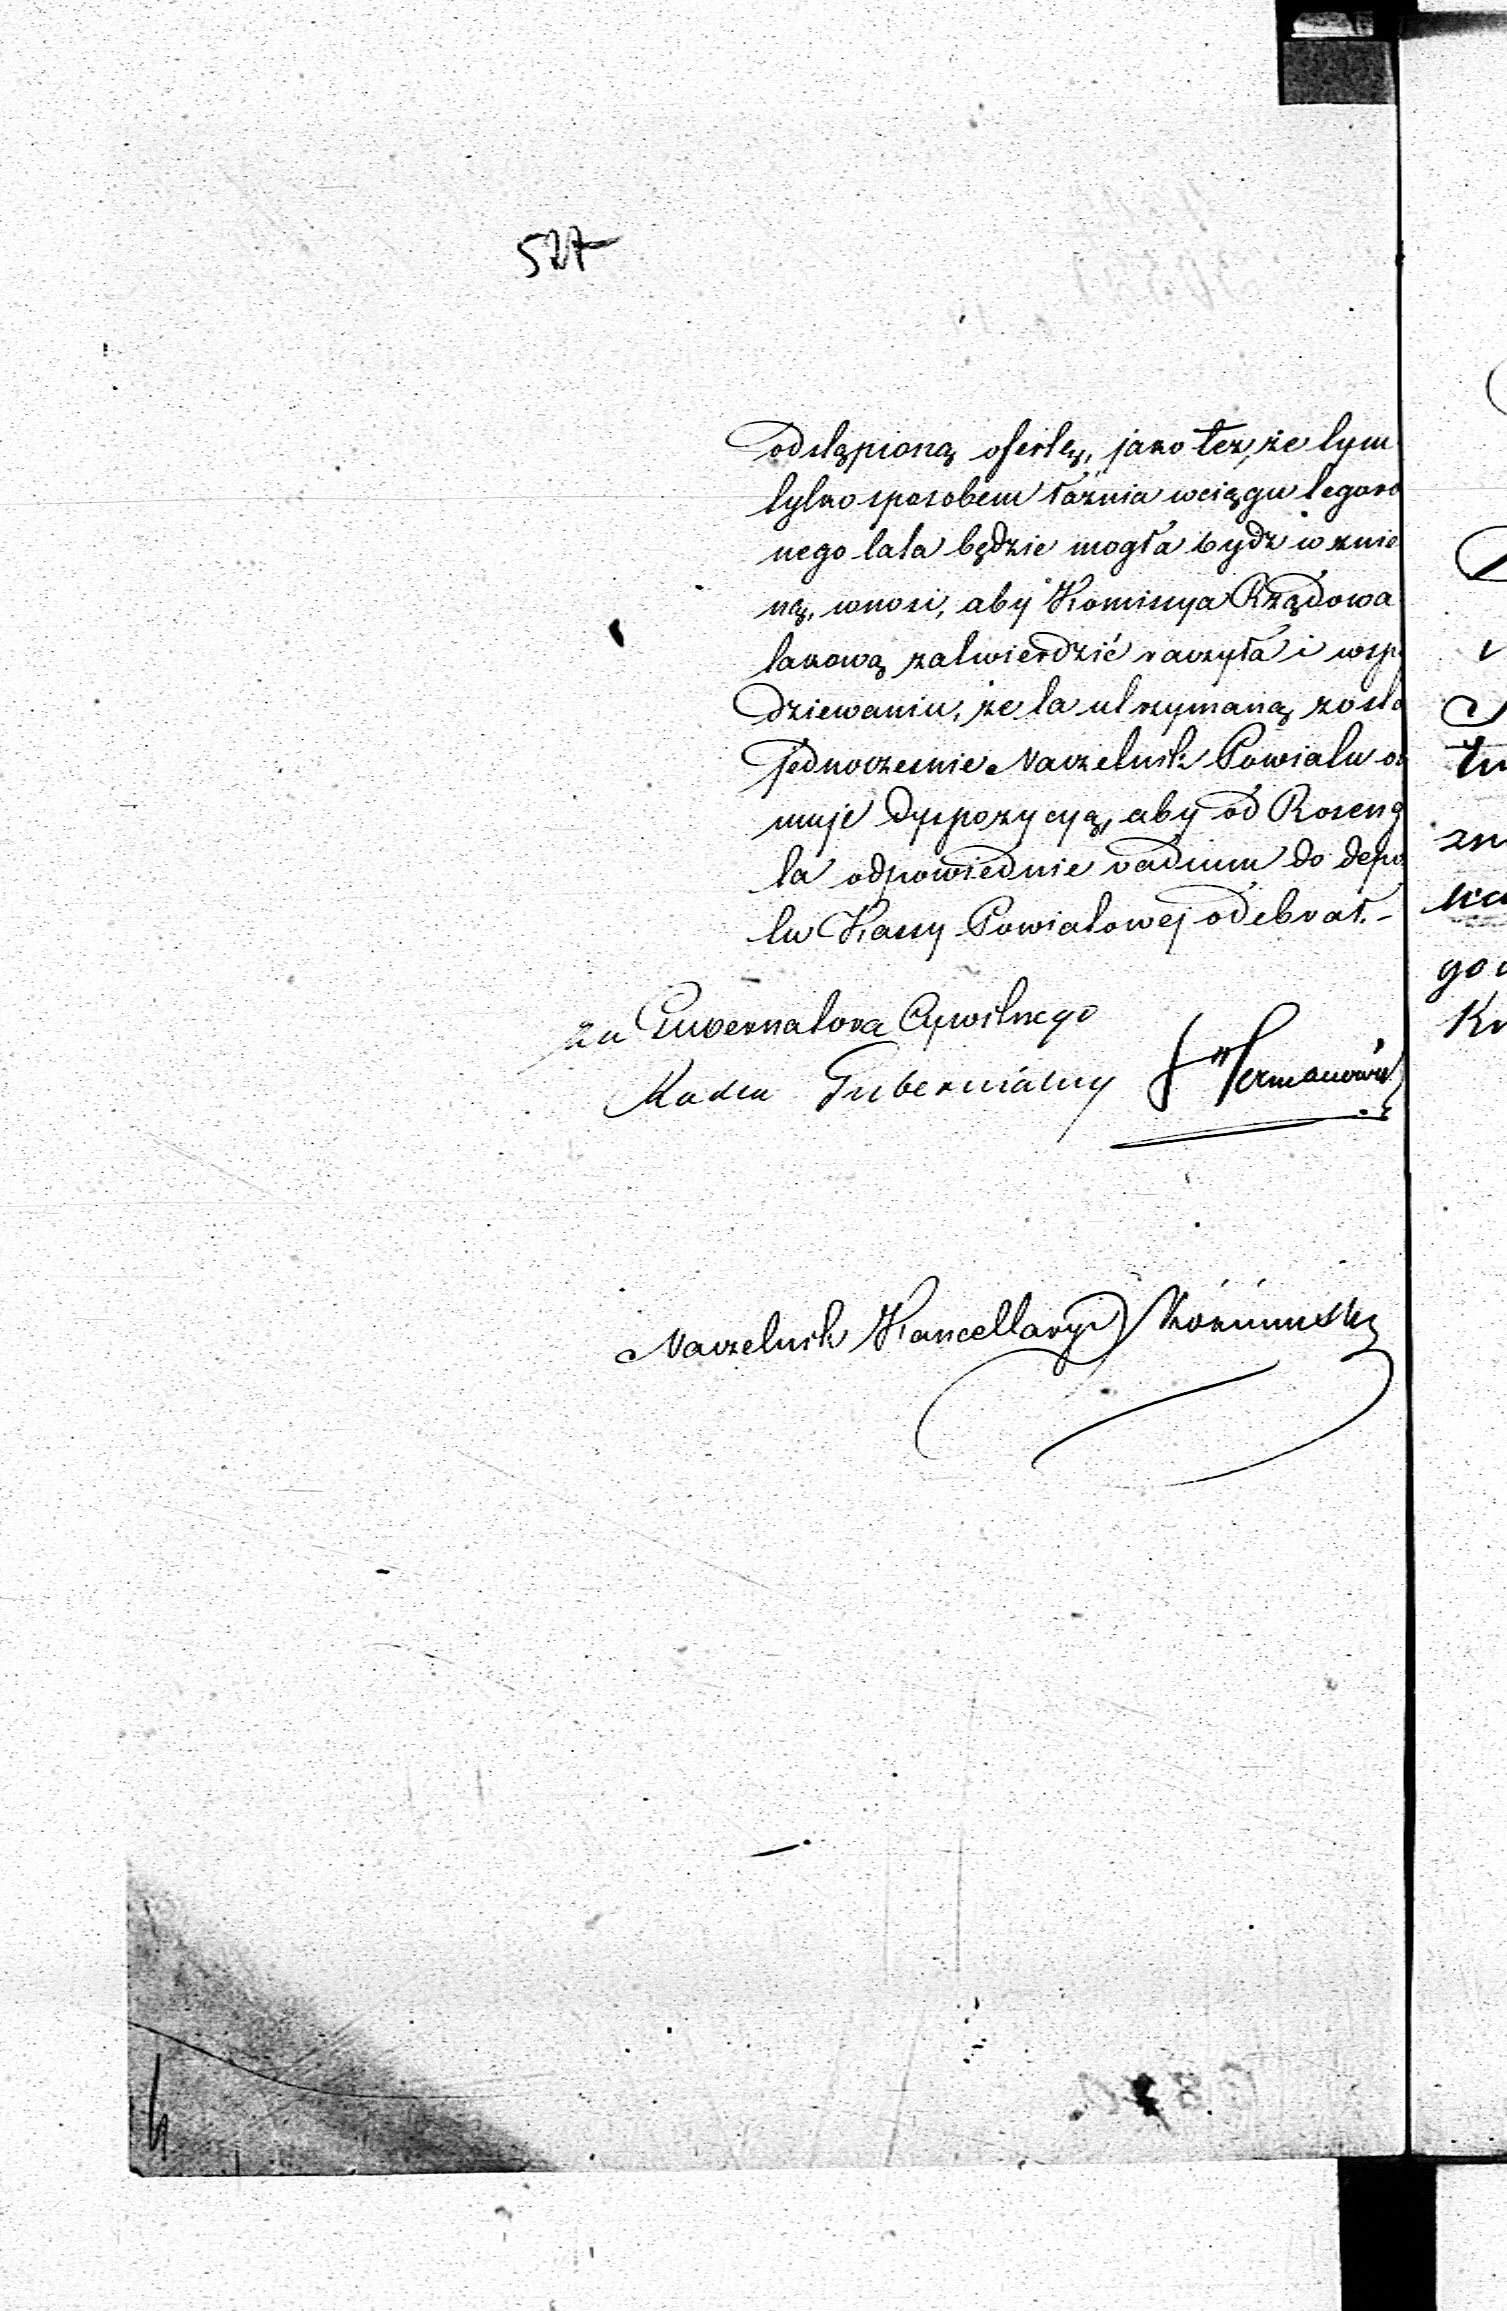 527
odstąpioną ofertę, jako też, że tym
tylko sposobem łaźnia wciągu tegoro
nego lata będzie mogła bydź wznie
ną, wnosi, aby Kommissya Rządowa
takową zatwierdzić raczyła i wspo
dziewaniu, że ta utrzymaną zosta
jednocześnie Naczelnik Powiatu o
muje dyspozycyą, aby od Roseng
ta odpowiednie vadium do depo
tu Kassy Powiatowej odebrał.-
za Gubernatora Cywilnego
Radca Gubernialny Hermanowicz
Naczelnik Kancellaryi